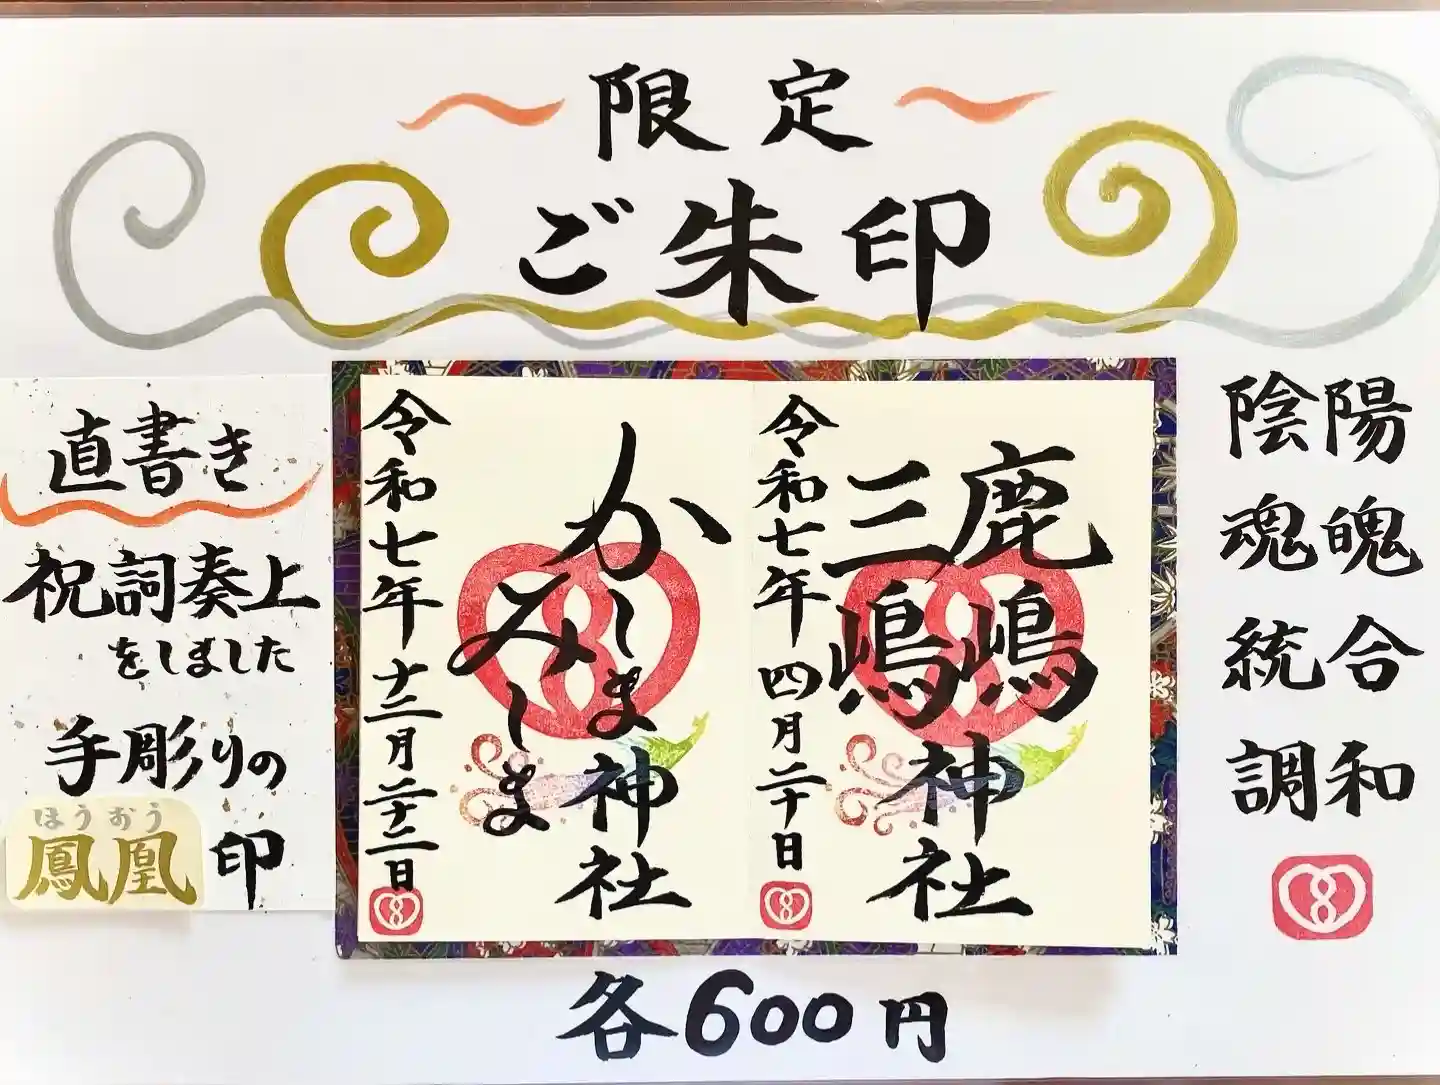 限定
ご朱印
陰陽
魂魄
統合
調和
鹿嶋
三嶋
神社
令和七年四月二十日
かしま神社
みしま
令和七年十二月二十二日
直書き
祝詞奏上
をしました
手彫りの
ほうおう
鳳凰印
各600円